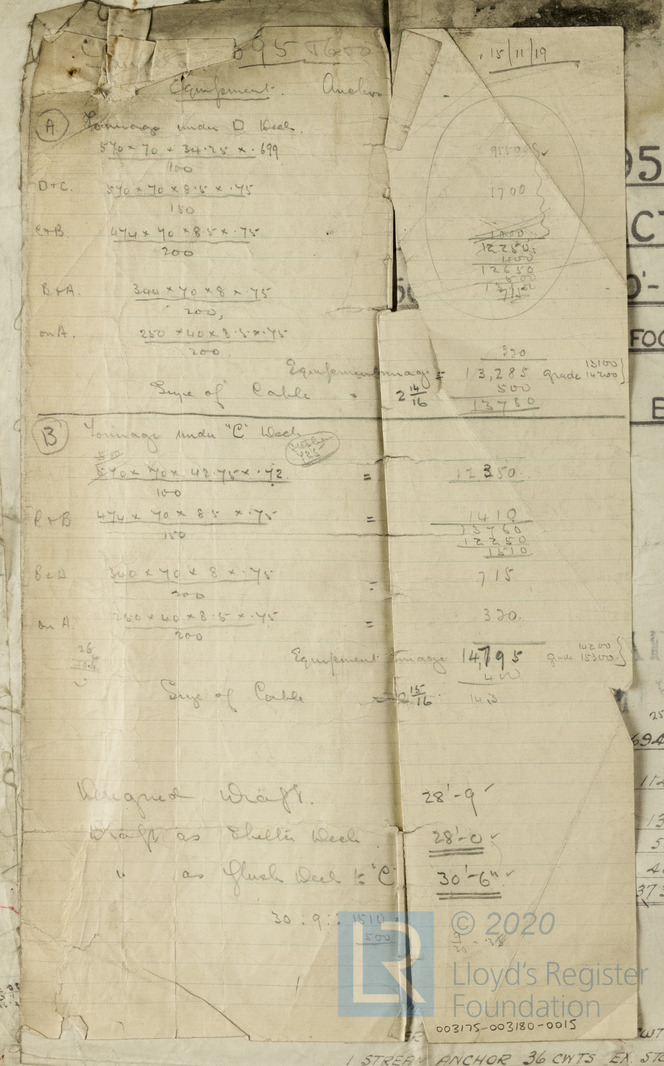 695
15/11/19
Equipment.
A Tonnage under D Deck.
570 × 70 × 34.25 × .699
100
D+C. 570 × 70 × 8.5 × .75 1700
150
C+B 474 × 70 × 8.5 × .75
200
12250
12650
B+A. 300 × 70 × 8 × .75
200
715
on A. 250 × 40 × 8.5 × .75
200
320
Equipment tonnage = 13,285 grade 13100 14200
500
Size of Cable = 2 14/16 13780
B Tonnage under "C" Deck
570 × 70 × 42.75 × .72 = 12350
100
C+B 474 × 70 × 8.5 × .75 = 1410
150
13760
12250
1510
B+A 300 × 70 × 8 × .75 = 715
200
on A. 250 × 40 × 8.5 × .75 = 320.
200
Equipment tonnage 14,795 grade 14200 15300
400
Size of Cable = 2 15/16
Designed Draft. 28'-9"
Draft as Shelter Deck 28'-0"
" as Flush Deck to "C" 30'-6"
30 : 9 :: 1510
500
LR
© 2020
Lloyd's Register
Foundation
003175-003180-0015
1 STREAM ANCHOR 36 CWTS EX. STO